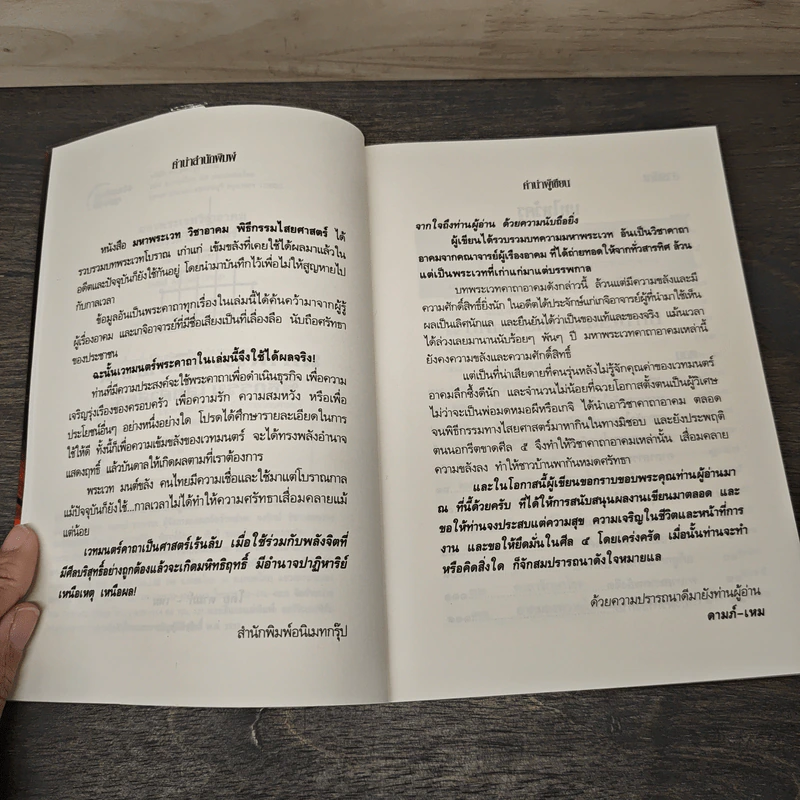 คำนำสำนักพิมพ์
หนังสือ มหาพระเวท วิชาอาคม พิธีกรรมไสยศาสตร์ ได้
รวบรวมบทพระเวทโบราณ เก่าแก่ เข้มขลังที่เคยใช้ได้ผลมาแล้วใน
อดีตและปัจจุบันก็ยังใช้กันอยู่ โดยนำมาบันทึกไว้เพื่อไม่ให้สูญหายไป
กับกาลเวลา
ข้อมูลอันเป็นพระคาถาทุกเรื่องในเล่มนี้ได้ค้นคว้ามาจากผู้รู้
ผู้เรืองอาคม และเกจิอาจารย์ที่มีชื่อเสียงเป็นที่เลื่องลือ นับถือศรัทธา
ของประชาชน
ฉะนั้นเวทมนตร์พระคาถาในเล่มนี้จึงใช้ได้ผลจริง!
ท่านที่มีความประสงค์จะใช้พระคาถาเพื่อดำเนินธุรกิจ เพื่อความ
เจริญรุ่งเรืองของครอบครัว เพื่อความรัก ความสมหวัง หรือเพื่อ
ประโยชน์อื่นๆ อย่างหนึ่งอย่างใด โปรดได้ศึกษารายละเอียดในการ
ใช้ให้ดี ทั้งนี้ก็เพื่อความเข้มขลังของเวทมนตร์ จะได้ทรงพลังอำนาจ
แสดงฤทธิ์ แล้วบันดาลให้เกิดผลตามที่เราต้องการ
พระเวท มนต์ขลัง คนไทยมีความเชื่อและใช้มาแต่โบราณกาล
แม้ปัจจุบันก็ยังใช้...กาลเวลาไม่ได้ทำให้ความศรัทธาเสื่อมคลายแม้
แต่น้อย
เวทมนตร์คาถาเป็นศาสตร์เร้นลับ เมื่อใช้ร่วมกับพลังจิตที่
มีศีลบริสุทธิ์อย่างถูกต้องแล้วจะเกิดมหิทธิฤทธิ์ มีอำนาจปาฏิหาริย์
เหนือเหตุ เหนือผล!
สำนักพิมพ์อนิเมทกรุ๊ป
คำนำผู้เขียน
จากใจถึงท่านผู้อ่าน ด้วยความนับถือยิ่ง
ผู้เขียนได้รวบรวมบทความมหาพระเวท อันเป็นวิชาคาถา
อาคมจากคณาจารย์ผู้เรืองอาคม ที่ได้ถ่ายทอดให้จากทั่วสารทิศ ล้วน
แต่เป็นพระเวทที่เก่าแก่มาแต่บรรพกาล
บทพระเวทคาถาอาคมดังกล่าวนี้ ล้วนแต่มีความขลังและมี
ความศักดิ์สิทธิ์ยิ่งนัก ในอดีตได้ประจักษ์แก่เกจิอาจารย์ผู้ที่นำมาใช้เห็น
ผลเป็นเลิศนักแล และยืนยันได้ว่าเป็นของแท้และของจริง แม้นเวลา
ได้ล่วงเลยมานานนับร้อยๆ พันๆ ปี มหาพระเวทคาถาอาคมเหล่านี้
ยังคงความขลังและความศักดิ์สิทธิ์
แต่เป็นที่น่าเสียดายที่คนรุ่นหลังไม่รู้จักคุณค่าของเวทมนตร์
อาคมลึกซึ้งดีนัก และจำนวนไม่น้อยที่ฉวยโอกาสตั้งตนเป็นผู้วิเศษ
ไม่ว่าจะเป็นพ่อมดหมอผีหรือเกจิ ได้นำเอาวิชาคาถาอาคม ตลอด
จนพิธีกรรมทางไสยศาสตร์มาหากินในทางมิชอบ และยังประพฤติ
ตนนอกรีตขาดศีล ๕ จึงทำให้วิชาคาถาอาคมเหล่านั้น เสื่อมคลาย
ความขลังลง ทำให้ชาวบ้านพากันหมดศรัทธา
และในโอกาสนี้ผู้เขียนขอกราบขอบพระคุณท่านผู้อ่านมา
ณ ที่นี้ด้วยครับ ที่ได้ให้การสนับสนุนผลงานเขียนมาตลอด และ
ขอให้ท่านจงประสบแต่ความสุข ความเจริญในชีวิตและหน้าที่การ
งาน และขอให้ยึดมั่นในศีล ๕ โดยเคร่งครัด เมื่อนั้นท่านจะทำ
หรือคิดสิ่งใด ก็จักสมปรารถนาดังใจหมายแล
ด้วยความปรารถนาดีมายังท่านผู้อ่าน
ดามภ์-เหม